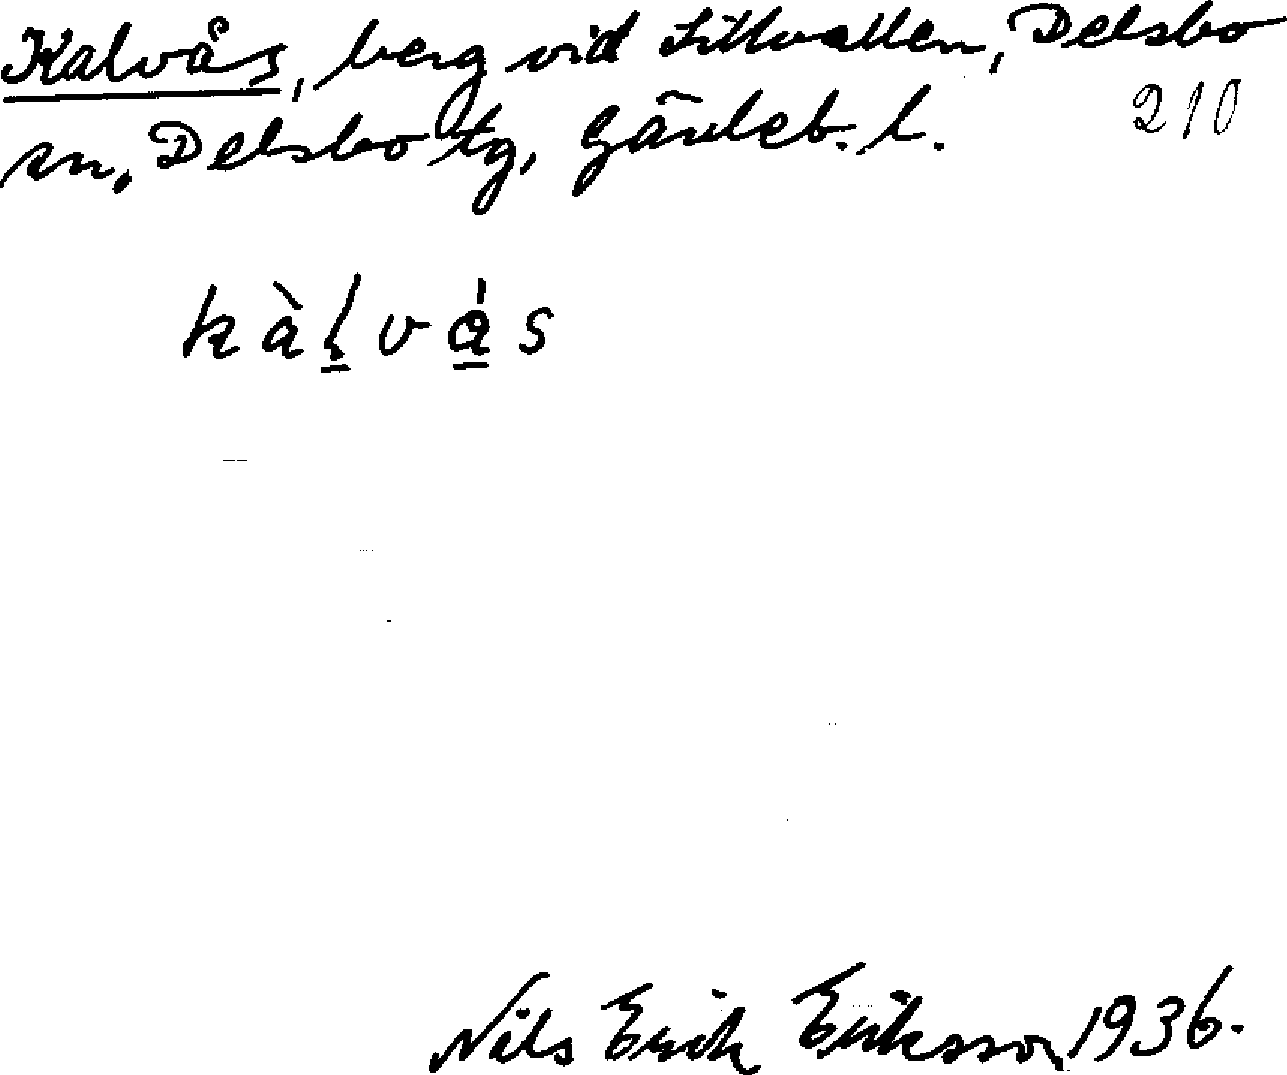 Kalvås, berg vid Lillvallen, Delsbo
sn, Delsbo tg, Gävleb. l.
210
kàḷvá̱s
Nils Erik Eriksson 1936.